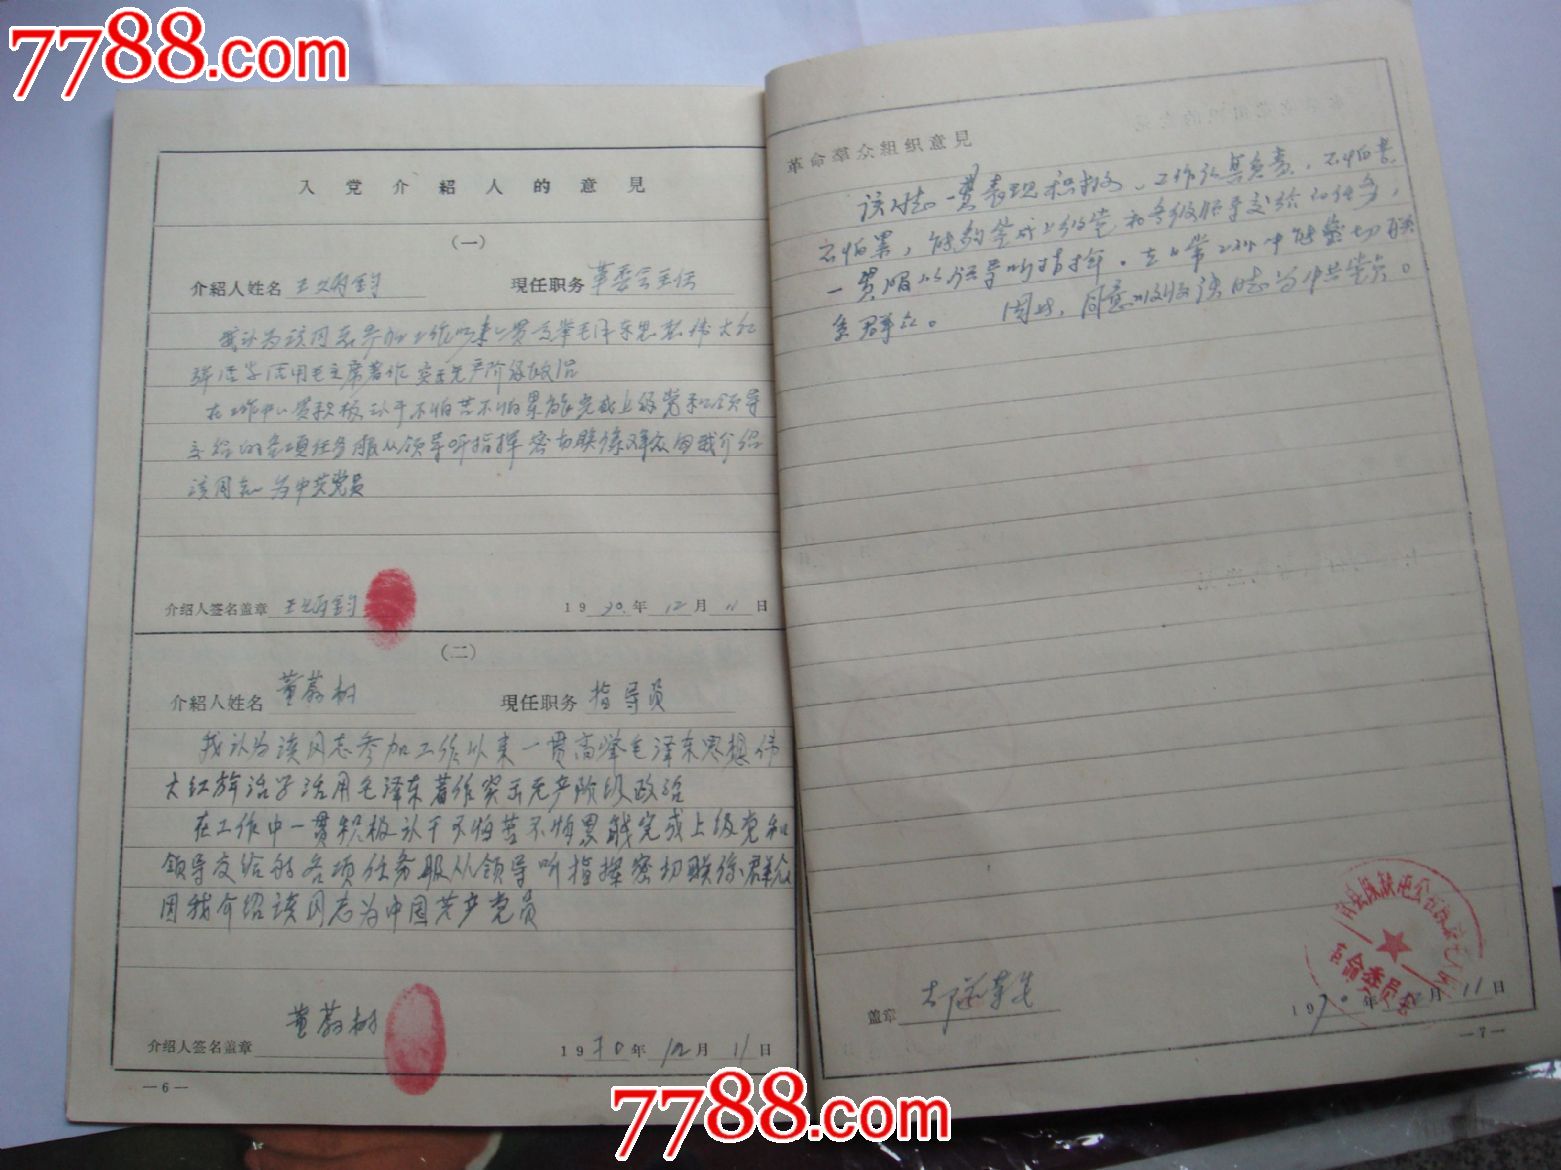 7788.com
入党介紹人的意見
（一）
介紹人姓名 現任职务 革委会主任
我认为该同志参加工作以来一贯高举毛泽东思想伟大红
活学活用毛主席著作突出无产阶级政治
在工作中一贯积极认干不怕苦不怕累能完成上级党和领导
交给的各项任务服从领导听指挥密切联系群众因我介绍
该同志为中共党员
介绍人签名盖章 1970年12月11日
（二）
介紹人姓名 董蔚树 現任职务 指导员
我认为该同志参加工作以来一贯高举毛泽东思想伟
大红旗活学活用毛泽东著作突出无产阶级政治
在工作中一贯积极认干不怕苦不怕累能完成上级党和
领导交给的各项任务服从领导听指挥密切联系群众
因我介绍该同志为中国共产党员
董蔚树
介紹人签名盖章 1970年12月11日
— 6 —
革命羣众組织意見
该同志一贯表现积极、工作认真负责、不怕苦
不怕累，能够完成上级党和各级领导交给的任务，
一贯服从领导听指挥。在日常工作中能密切联
系群众。 因此，同意吸收该同志为中共党员。
盖章
革命委员会
1970年12月11日
— 7 —
7788.com